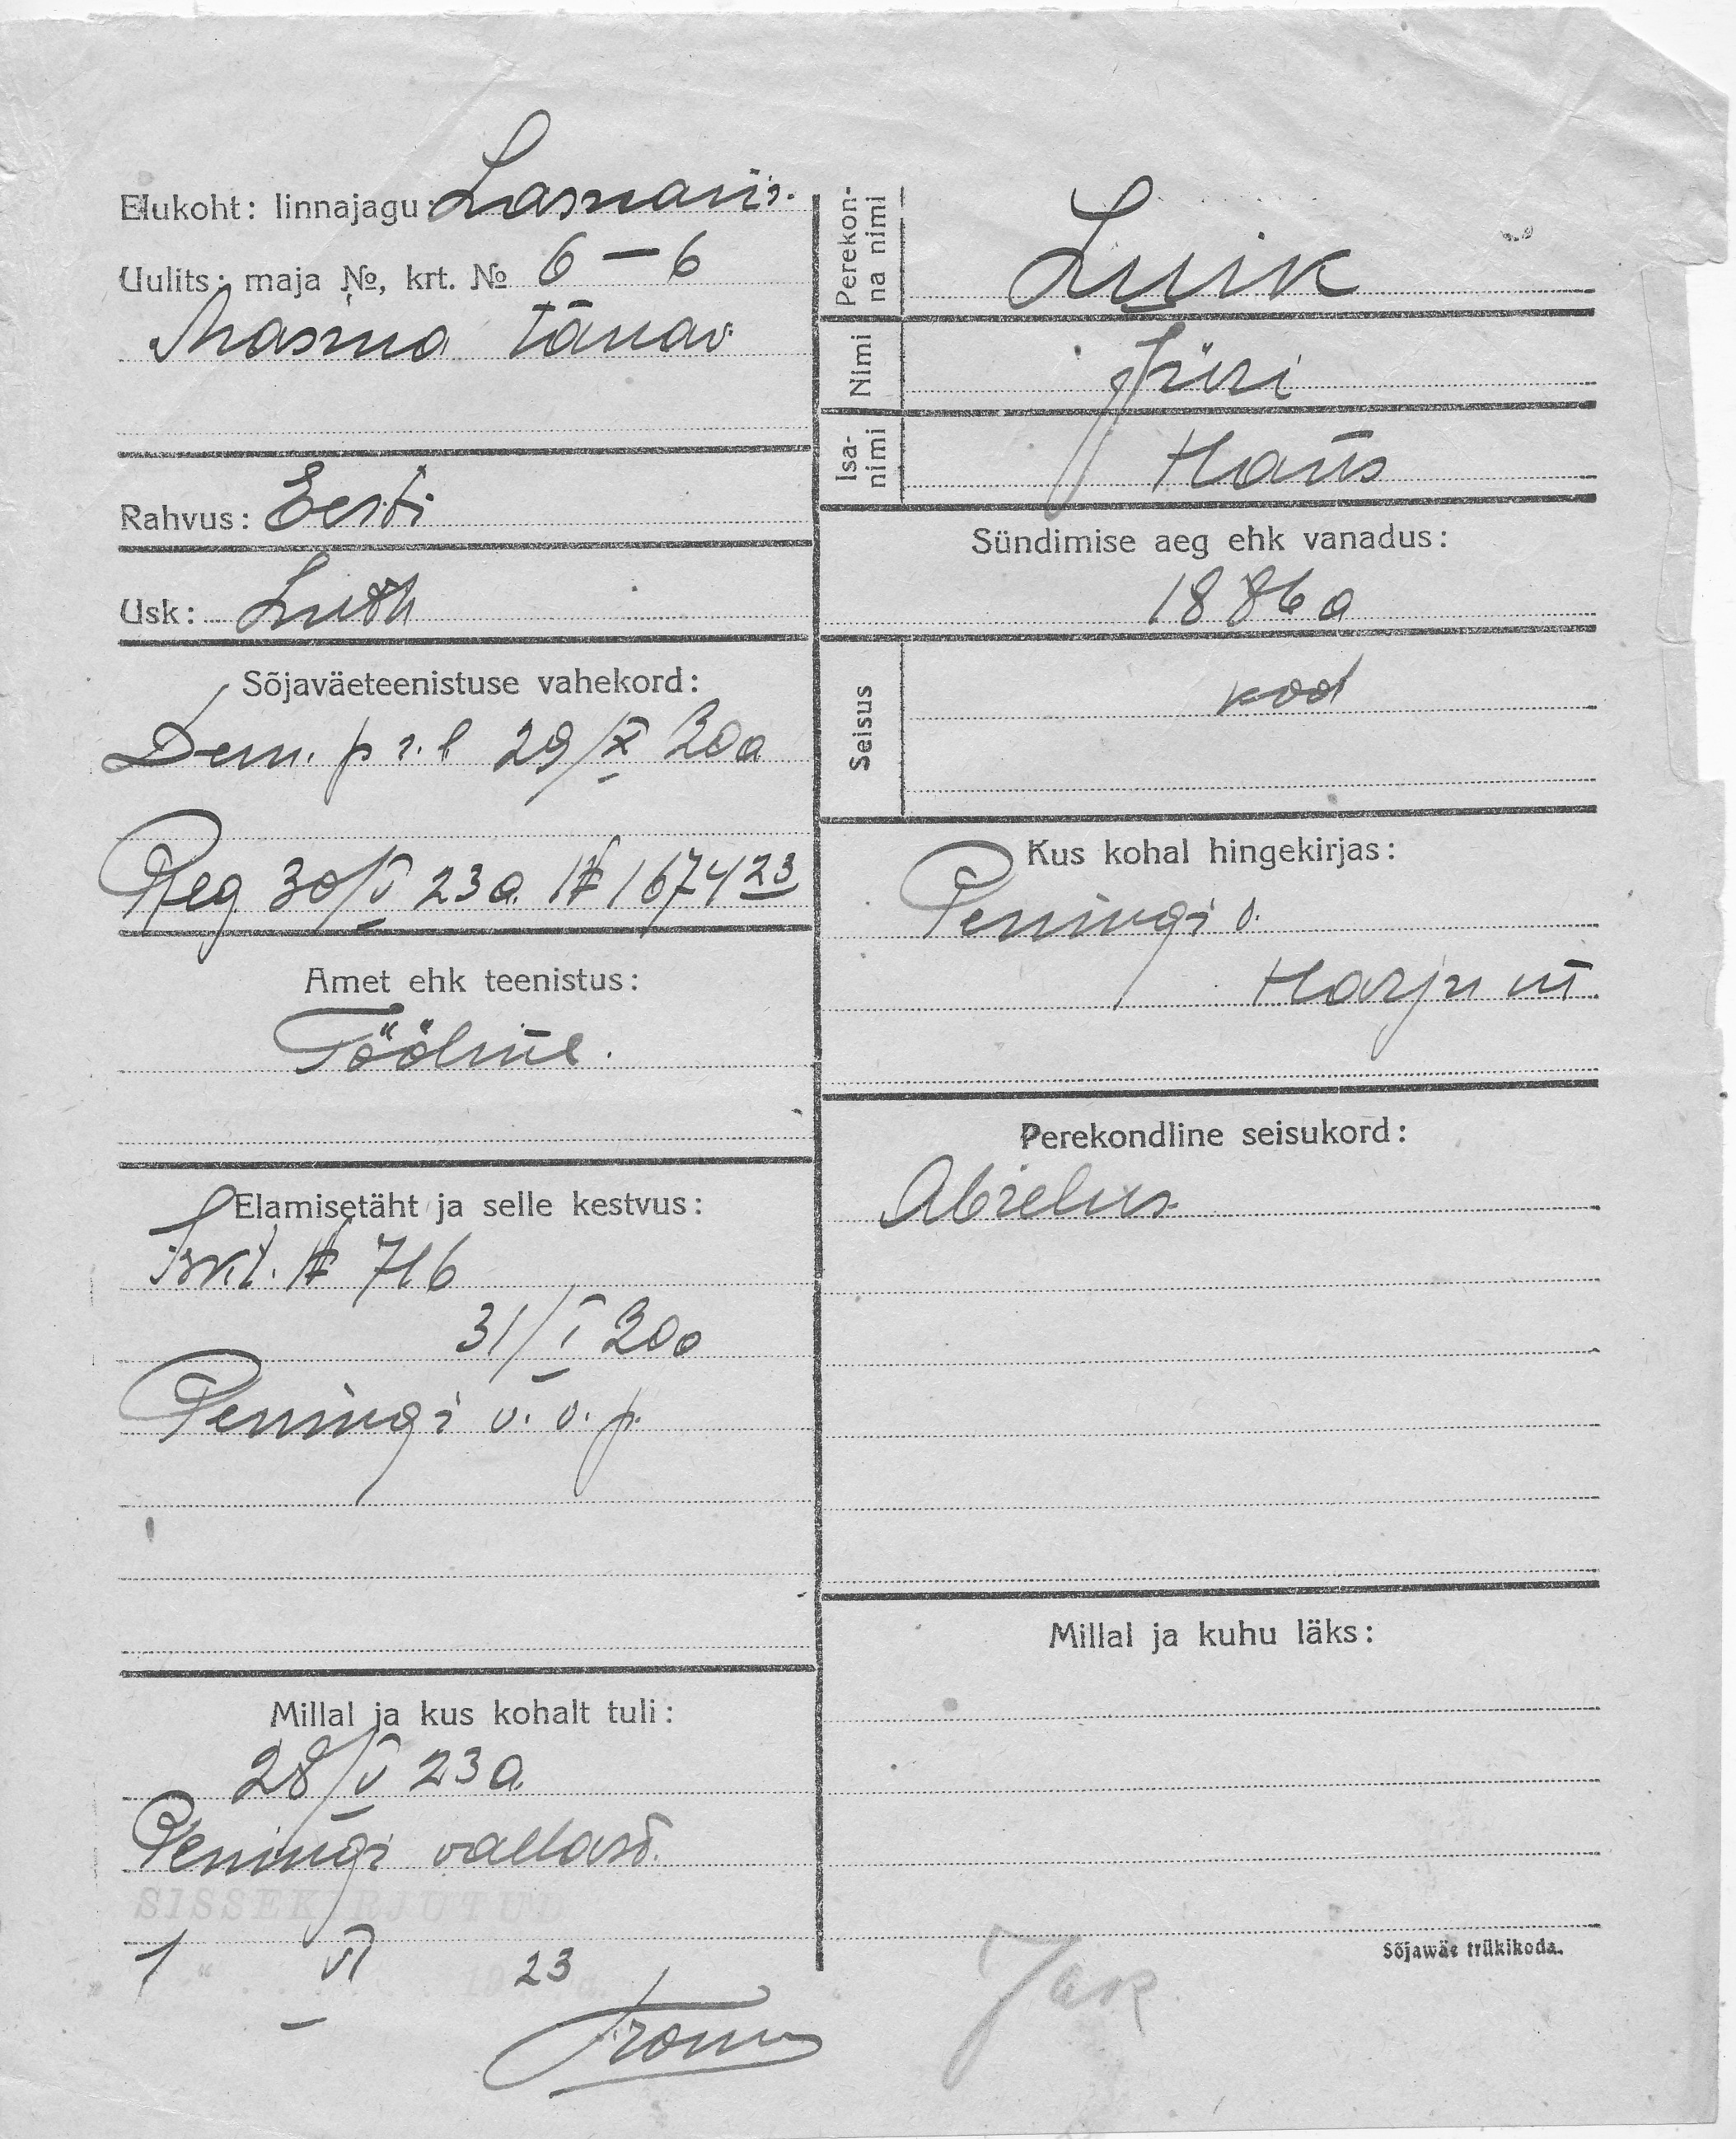 Elukoht: linnajagu: Lasnam.
Uulits: maja №, krt. № 6 — 6
Masina tänav
Rahvus: Eesti
Usk: Luth
Sõjaväeteenistuse vahekord:
Dem. p. r. l 29/X 20a
Reg 30/V 23a. № 1674 23
Amet ehk teenistus:
Tööline.
Elamisetäht ja selle kestvus:
Iskt. № 716
31/I 20a
Peningi v. v. p.
Millal ja kus kohalt tuli:
28/V 23a.
Peningi vallast.
SISSEKIRJUTUD
1 " VI 23
Perekon-
na nimi
Luik
Nimi
Jüri
Isa-
nimi
Hans
Sündimise aeg ehk vanadus:
1886a
Seisus
kod
Kus kohal hingekirjas:
Peningi v.
Harju m.
Perekondline seisukord:
Abielus.
Millal ja kuhu läks:
Sõjawäe trükikoda.